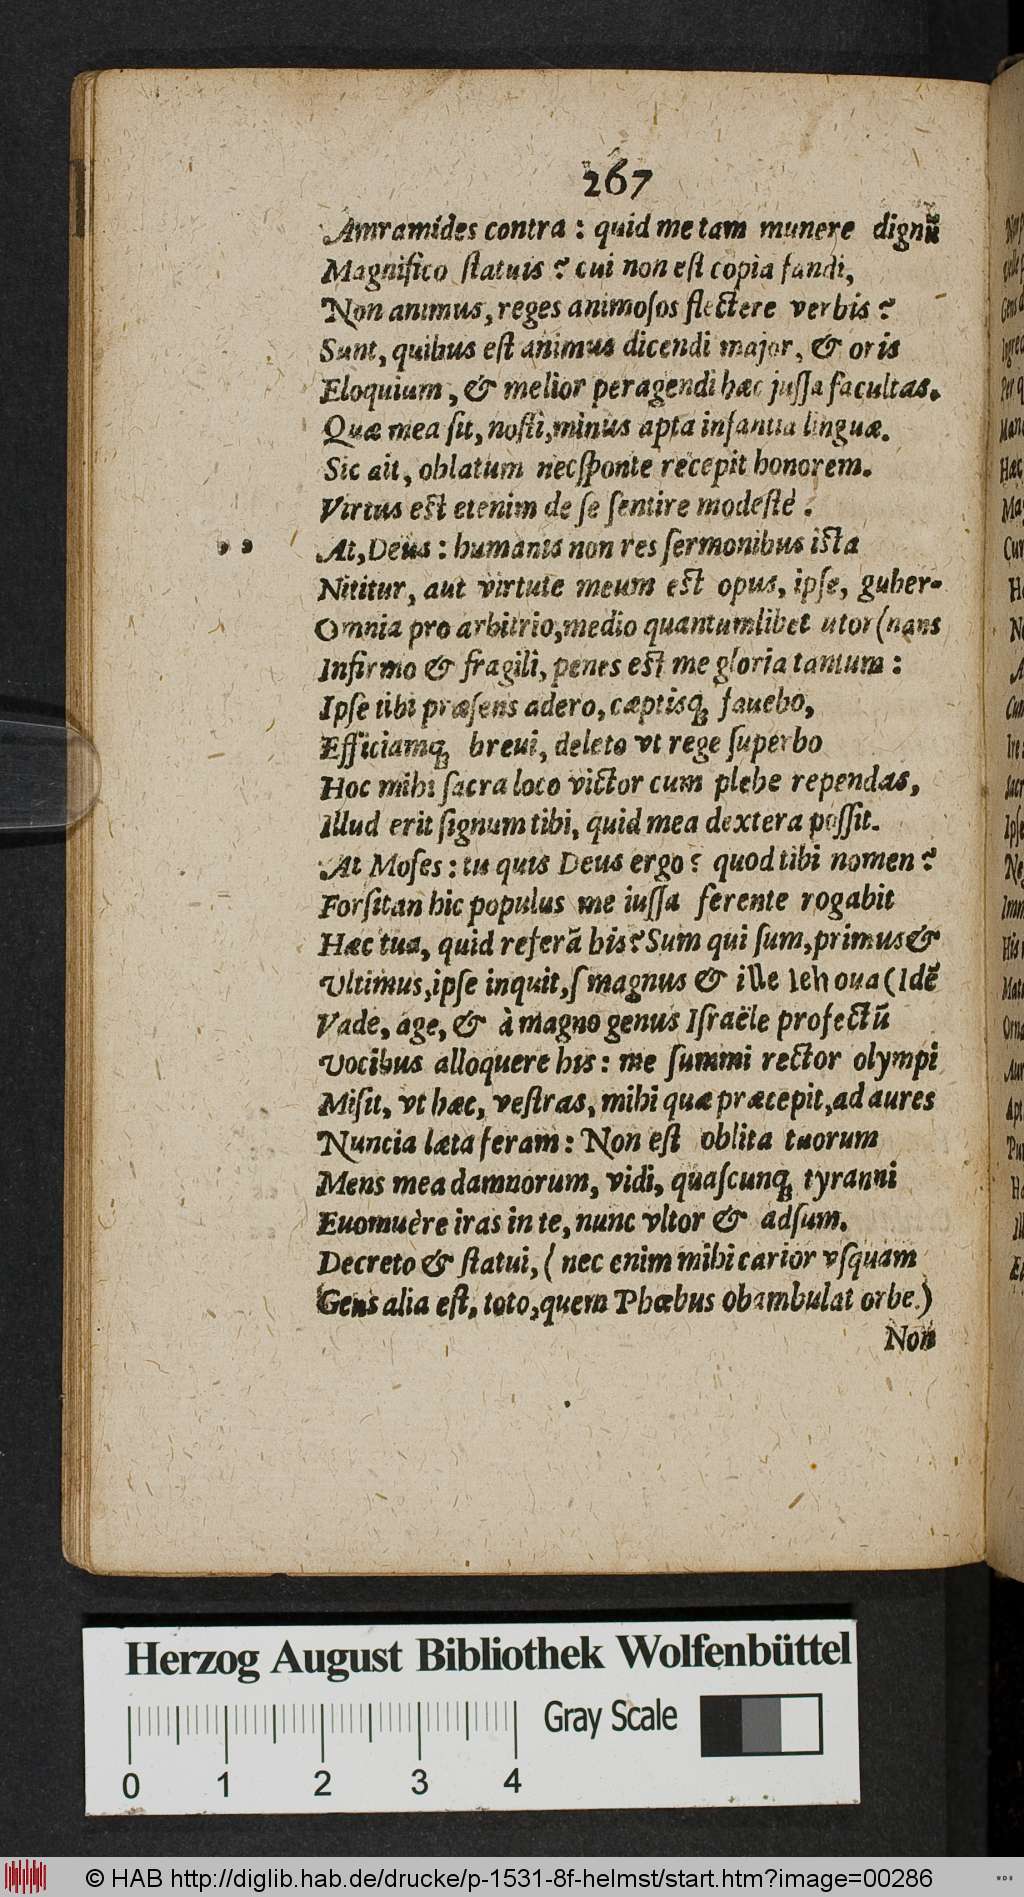 267
Amramides contra : quid me tam munere dignũ
Magnifico ſtatuis ? cui non eſt copia fandi,
Non animus, reges animoſos flectere verbis ?
Sunt, quibus eſt animus dicendi major, & oris
Eloquium, & melior peragendi hæc juſſa facultas.
Quæ mea ſit, noſti, minus apta infantia linguæ.
Sic ait, oblatum nec ſponte recepit honorem.
Virtus eſt etenim de ſe ſentire modeſtè.
At, Deus : humanis non res ſermonibus iſta
Nititur, aut virtute meum eſt opus, ipſe, guber-
Omnia pro arbitrio, medio quantumlibet utor (nans
Infirmo & fragili, penes eſt me gloria tantum :
Ipſe tibi præſens adero, cæptisq; fauebo,
Efficiamq; breui, deleto vt rege ſuperbo
Hoc mihi ſacra loco victor cum plebe rependas,
Illud erit ſignum tibi, quid mea dextera poſſit.
At Moſes : tu quis Deus ergo ? quod tibi nomen ?
Forſitan hic populus me iuſſa ferente rogabit
Hæc tua, quid referã his? Sum qui ſum, primus &
Vltimus, ipſe inquit, ſ magnus & ille Iehoua (Idẽ
Vade, age, & à magno genus Iſraële profectũ
Vocibus alloquere his : me ſummi rector olympi
Miſit, vt hæc, veſtras, mihi quæ præcepit, ad aures
Nuncia læta feram : Non eſt oblita tuorum
Mens mea damnorum, vidi, quaſcunq; tyranni
Euomuère iras in te, nunc vltor & adſum.
Decreto & ſtatui, ( nec enim mihi carior vſquam
Gens alia eſt, toto, quem Phœbus obambulat orbe.)
Non
Herzog August Bibliothek Wolfenbüttel
Gray Scale
0 1 2 3 4
© HAB http://diglib.hab.de/drucke/p-1531-8f-helmst/start.htm?image=00286